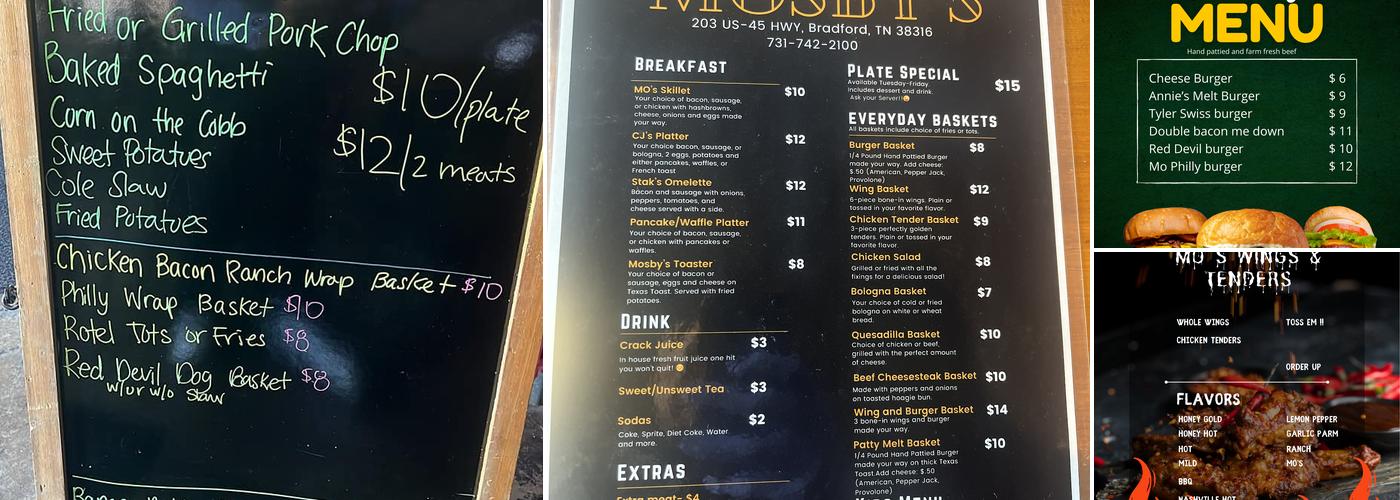 Fried or Grilled Pork Chop
Baked Spaghetti
$10/plate
Corn on the Cobb
$12/2 meats
Sweet Potatoes
Cole Slaw
Fried Potatoes
Chicken Bacon Ranch Wrap Basket $10
Philly Wrap Basket $10
Rotel Tots or Fries $8
Red Devil Dog Basket $8
w/ or w/o Slaw
MOSBY'S
203 US-45 HWY, Bradford, TN 38316
731-742-2100
BREAKFAST
MO's Skillet $10
Your choice of bacon, sausage,
or chicken with hashbrowns,
cheese, onions and eggs made
your way.
CJ's Platter $12
Your choice bacon, sausage, or
bologna, 2 eggs, potatoes and
either pancakes, waffles, or
French toast
Stak's Omelette $12
Bacon and sausage with onions,
peppers, tomatoes, and
cheese served with a side.
Pancake/Waffle Platter $11
Your choice of bacon, sausage,
or chicken with pancakes or
waffles.
Mosby's Toaster $8
Your choice of bacon or
sausage, eggs and cheese on
Texas Toast. Served with fried
potatoes.
DRINK
Crack Juice $3
In house fresh fruit juice one hit
you won't quit! 😉
Sweet/Unsweet Tea $3
Sodas $2
Coke, Sprite, Diet Coke, Water
and more.
EXTRAS
Extra meat- $4
PLATE SPECIAL $15
Available Tuesday-Friday.
Includes dessert and drink.
Ask your Server!!😋
EVERYDAY BASKETS
All baskets include choice of fries or tots.
Burger Basket $8
1/4 Pound Hand Pattied Burger
made your way. Add cheese:
$.50 (American, Pepper Jack,
Provolone)
Wing Basket $12
6-piece bone-in wings. Plain or
tossed in your favorite flavor.
Chicken Tender Basket $9
3-piece perfectly golden
tenders. Plain or tossed in your
favorite flavor.
Chicken Salad $8
Grilled or fried with all the
fixings for a delicious salad!
Bologna Basket $7
Your choice of cold or fried
bologna on white or wheat
bread.
Quesadilla Basket $10
Choice of chicken or beef,
grilled with the perfect amount
of cheese.
Beef Cheesesteak Basket $10
Made with peppers and onions
on toasted hoagie bun.
Wing and Burger Basket $14
3 bone-in wings and burger
made your way.
Patty Melt Basket $10
1/4 Pound Hand Pattied Burger
made your way on thick Texas
Toast.Add cheese: $.50
(American, Pepper Jack,
Provolone)
KIDS MENU
MENU
Hand pattied and farm fresh beef
Cheese Burger $ 6
Annie's Melt Burger $ 9
Tyler Swiss burger $ 9
Double bacon me down $ 11
Red Devil burger $ 10
Mo Philly burger $ 12
MO'S WINGS &
TENDERS
WHOLE WINGS TOSS EM !!
CHICKEN TENDERS
ORDER UP
FLAVORS
HONEY GOLD LEMON PEPPER
HONEY HOT GARLIC PARM
HOT RANCH
MILD MO'S
BBQ
NASHVILLE HOT